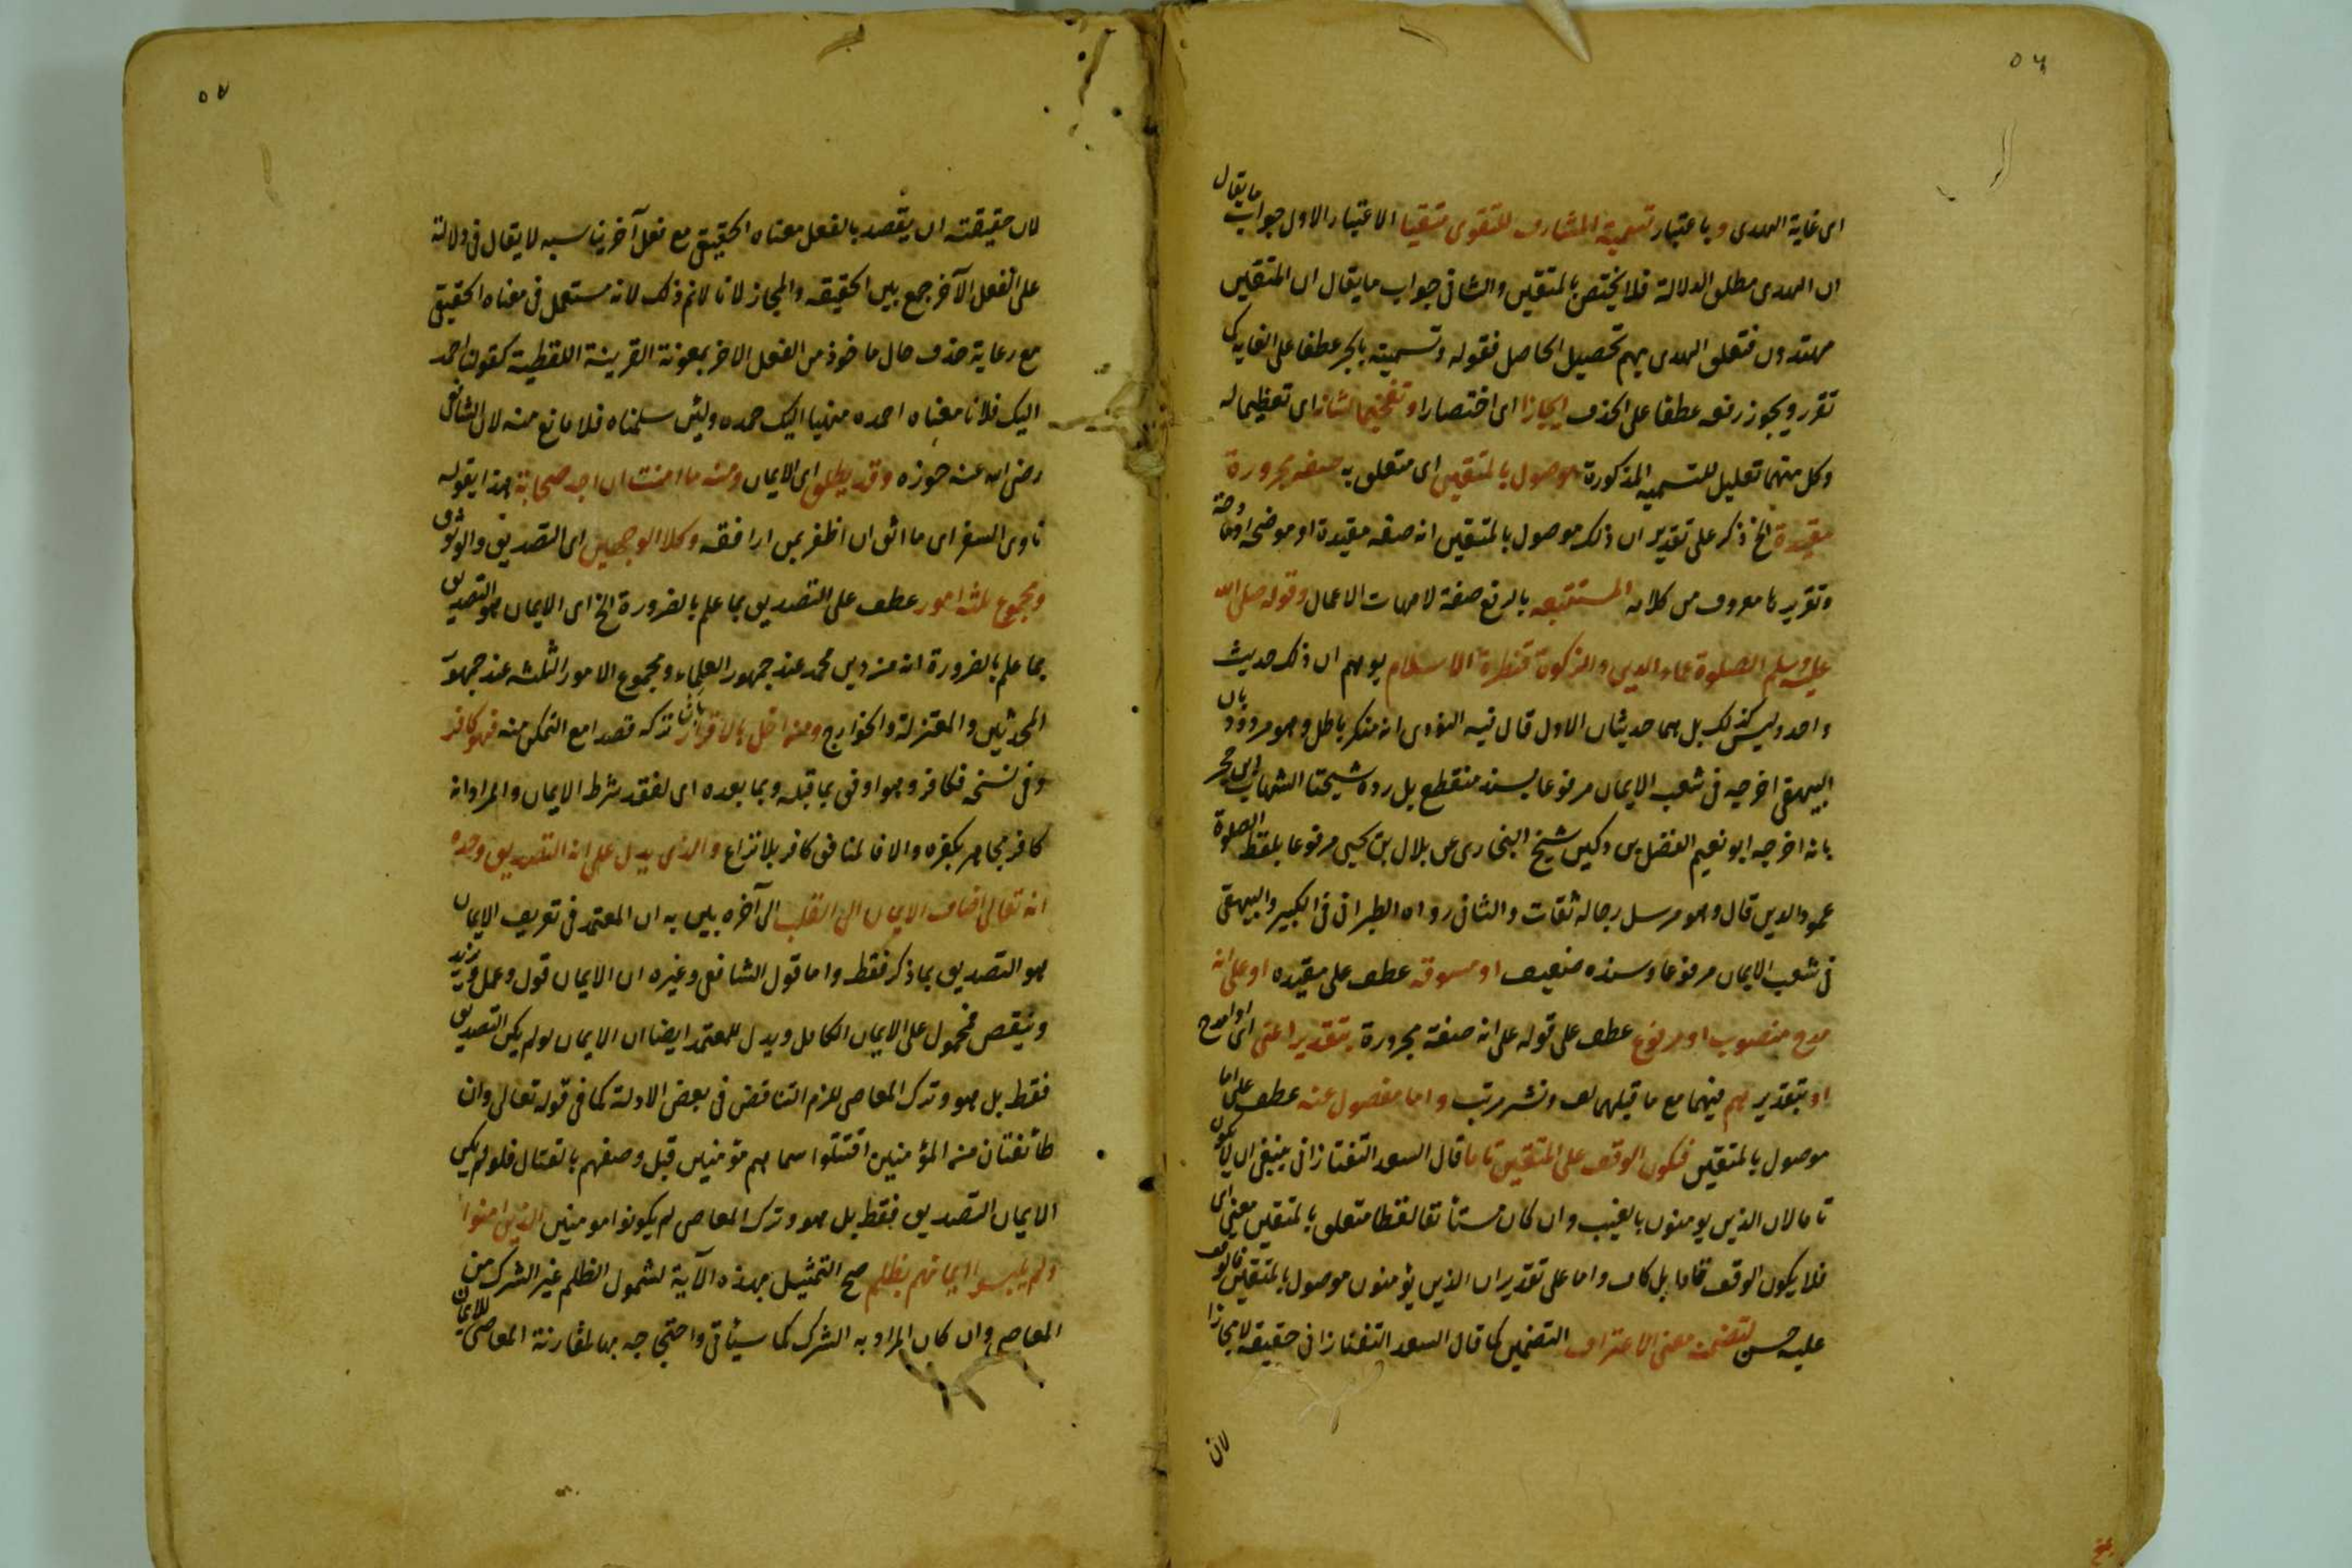 ٥٦
اى غاية الهدى وباعتبار تسمية المشارف للتقوى متقيا الاعتبار الاول جواب ما يقال
ان الهدى مطلق الدلالة فلا يختص بالمتقين والثانى جواب ما يقال ان المتقين
مهتدون فتعلق الهدى بهم تحصيل الحاصل فقوله وتسميته بالجر عطفا على الغاية كما
تقرر ويجوز رفعه عطفا على الحذف ايجازا اى اختصارا وتفخيما لشانه اى تعظيما له
وكل منهما تعليل للتسمية المذكورة موصول بالمتقين اى متعلق به صفة مجرورة
مقيدة الخ ذكر على تقدير ان ذلك موصول بالمتقين انه صفة مقيدة او موضحة او مادحة
وتقريرها معروف من كلامه المستتبعه بالرفع صفة لامهات الاعمال وقوله صلى الله
عليه وسلم الصلوة عماد الدين والزكوة قنطرة الاسلام يوهم ان ذلك حديث
واحد وليس كذلك بل هما حديثان الاول قال فيه النووى انه منكر باطل وهو مردود بان
البيهقى اخرجه فى شعب الايمان مرفوعا بسند منقطع بل رده شيخنا الشهاب ابن حجر
بانه اخرجه ابو نعيم الفضل بن دكين شيخ البخارى عن بلال بن يحيى مرفوعا بلفظ الصلوة
عمود الدين قال وهو مرسل رجاله ثقات والثانى رواه الطبرانى فى الكبير والبيهقى
فى شعب الايمان مرفوعا وسنده ضعيف او مسوقة عطف على مقيده او على انه
مدح منصوب او مرفوع عطف على قوله على انه صفة مجرورة بتقدير اعنى اى او امدح
او بتقدير هم فيهما مع ما قبلهما لف ونشر مرتب واما مفصول عنه عطف على اما
موصول بالمتقين فيكون الوقف على المتقين تاما قال السعد التفتازانى ينبغى ان لا يكون
تاما لان الذين يومنون بالغيب وان كان مستأنفا لفظا متعلق بالمتقين معنى اى
فلا يكون الوقف تماما بل كاف واما على تقدير ان الذين يؤمنون موصول بالمتقين فالوقف
عليه حسن لتضمنه معنى الاعتراف التضمين كما قال السعد التفتازانى حقيقة لا مجازا
لان
٥٧
لان حقيقته ان يقصد بالفعل معناه الحقيقى مع فعل آخر يناسبه لا يقال فى دلالته
على الفعل الآخر جمع بين الحقيقه والمجاز لانا لانم ذلك لانه مستعمل فى معناه الحقيقى
مع رعاية حذف حال ماخوذ من الفعل الاخر بمعونة القرينة اللفظية كقولنا احمد
اليك فلانا معناه احمده منهيا اليك حمده ولئن سلمناه فلا مانع منه لان الشافعى
رضى الله عنه جوزه وقد يطلق اى الايمان ومنه ما امنت ان اجد صحابة هذا يقوله
ناوى السفر اى ما اثق ان اظفر بمن ارافقه وكلا الوجهين اى التصديق والوثوق
ومجموع ثلثه امور عطف على التصديق بما علم بالضرورة الخ اى الايمان هو التصديق
بما علم بالضرورة انه من دين محمد عند جمهور العلماء ومجموع الامور الثلثه عند جمهور
المحدثين والمعتزلة والخوارج ومن اخل بالاقرار بان تركه قصدا مع التمكن منه فهو كافر
وفى نسخه فكافر وهو اوفق بما قبله وبما بعده اى لفقد شرط الايمان والمراد انه
كافر مجاهر بكفره والا فالمنافق كافر بلا نزاع والذى يدل على انه التصديق وحده
انه تعالى اضاف الايمان الى القلب الى آخره بين به ان المعتمد فى تعريف الايمان
هو التصديق بما ذكر فقط واما قول الشافعى وغيره ان الايمان قول وعمل ويزيد
وينقص فمحمول على الايمان الكامل ويدل للمعتمد ايضا ان الايمان لو لم يكن التصديق
فقط بل هو وترك المعاصى للزم التناقض فى بعض الادلة كما فى قوله تعالى وان
طائفتان من المؤمنين اقتتلوا سماهم مؤمنين قبل وصفهم بالقتال فلو لم يكن
الايمان التصديق فقط بل هو وترك المعاصى لم يكونوا مومنين الذين امنوا
ولم يلبسوا ايمانهم بظلم صح التمثيل بهذه الآية لشمول الظلم غير الشرك من
المعاصى وان كان المراد به الشرك كما سيأتى واحتجاجه بها لمقارنة المعاصى للايمان